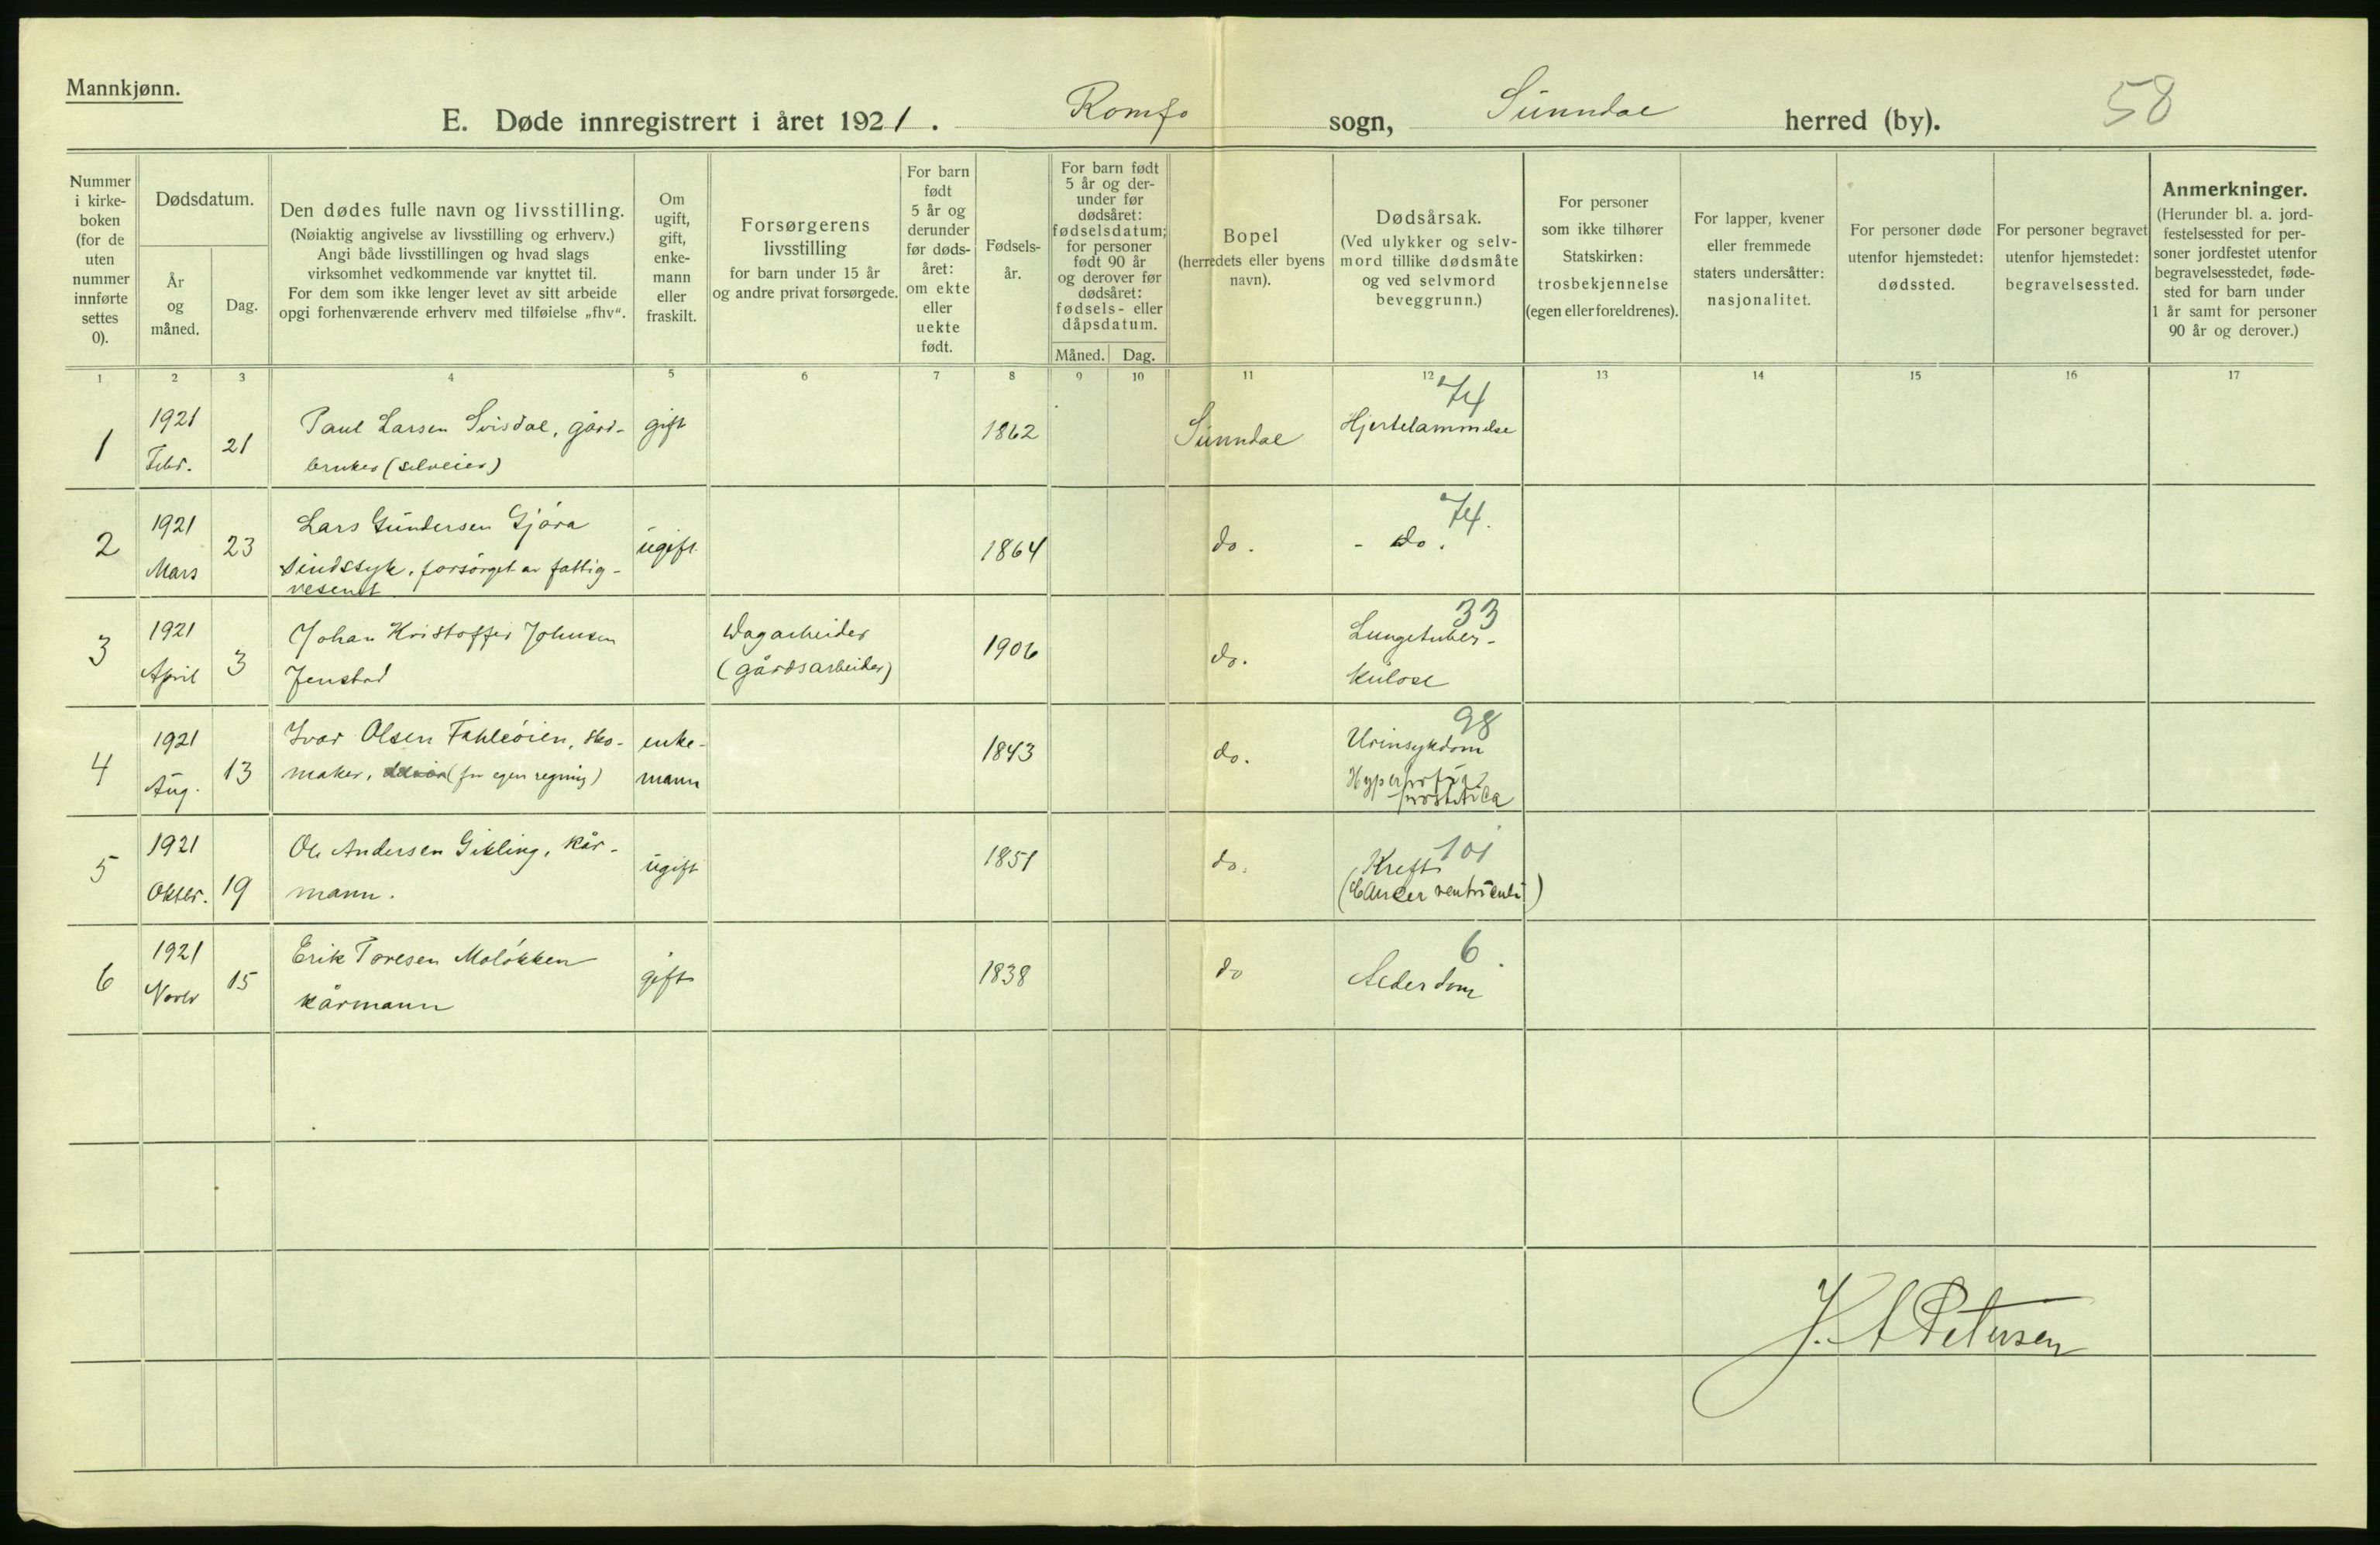 Mannkjønn.
E. Døde innregistrert i året 1921. Romfo sogn, Sunndal herred (by). 58
Nummer i kirkeboken (for de uten nummer innførte settes 0).
Dødsdatum.
År og måned.
Dag.
Den dødes fulle navn og livsstilling.
(Nøiaktig angivelse av livsstilling og erhverv.)
Angi både livsstillingen og hvad slags
virksomhet vedkommende var knyttet til.
For dem som ikke lenger levet av sitt arbeide
opgi forhenværende erhverv med tilføielse „fhv“.
Om ugift, gift, enkemann eller fraskilt.
Forsørgerens
livsstilling
for barn under 15 år
og andre privat forsørgede.
For barn født 5 år og derunder før dødsåret: om ekte eller uekte født.
Fødselsår.
For barn født 5 år og derunder før dødsåret: fødselsdatum; for personer født 90 år og derover før dødsåret: fødsels- eller dåpsdatum.
Måned. Dag.
Bopel
(herredets eller byens navn).
Dødsårsak.
(Ved ulykker og selvmord tillike dødsmåte og ved selvmord beveggrunn.)
For personer som ikke tilhører Statskirken: trosbekjennelse (egen eller foreldrenes).
For lapper, kvener eller fremmede staters undersåtter: nasjonalitet.
For personer døde utenfor hjemstedet: dødssted.
For personer begravet utenfor hjemstedet: begravelsessted.
Anmerkninger.
(Herunder bl. a. jordfestelsessted for personer jordfestet utenfor begravelsesstedet, fødested for barn under 1 år samt for personer 90 år og derover.)
1 2 3 4 5 6 7 8 9 10 11 12 13 14 15 16 17
1 1921 Febr. 21 Paul Larsen Svisdal, gård-
bruker (selveier) gift 1862 Sunndal Hjertelammelse 74
2 1921 Mars 23 Lars Gundersen Gjøra
sindssyk, forsørget av fattig-
vesenet ugift 1864 do. - do. 74.
3 1921 April 3 Johan Kristoffer Johnsen
Jenstad Dagarbeider
(gårdsarbeider) 1906 do. 33 Lungetuber-
kulose
4 1921 Aug. 13 Ivar Olsen Fahleøien, sko-
maker, (for egen regning) enke-
mann 1843 do. 98 Urinsykdom
Hypertrofia
prostatica
5 1921 Oktbr. 19 Ole Andersen Gikling, kår-
mann. ugift 1851 do. 101 Kreft
(Cancer ventriculi)
6 1921 Novbr 15 Erik Toresen Moløkken
kårmann gift 1838 do 6. Alderdom
J. A Petersen